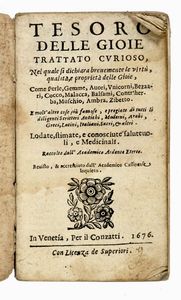 TESORO
DELLE GIOIE
TRATTATO CVRIOSO,
Nel quale si dichiara brevemente le virtù,
qualità, e proprietà delle Gioie,
Come Perle, Gemme, Auori, Vnicorni, Bezzari,
Cocco, Malacca, Balsami, Contr'herba,
Muschio, Ambra, Zibetto.
E molt'altre cose più famose, e pregiate da tutti li
diligenti Scrittori Antichi, Moderni, Arabi,
Greci, Latini, Italiani, Sacri, & altri.
Lodate, stimate, e conosciute salutevoli,
e Medicinali.
Raccolto dall' Academico Ardente Etereo.
Revisto, & accresciuto dall' Academico
Inquieto.
In Venetia, Per il Conzatti. 1676.
Con Licenza de Superiori.